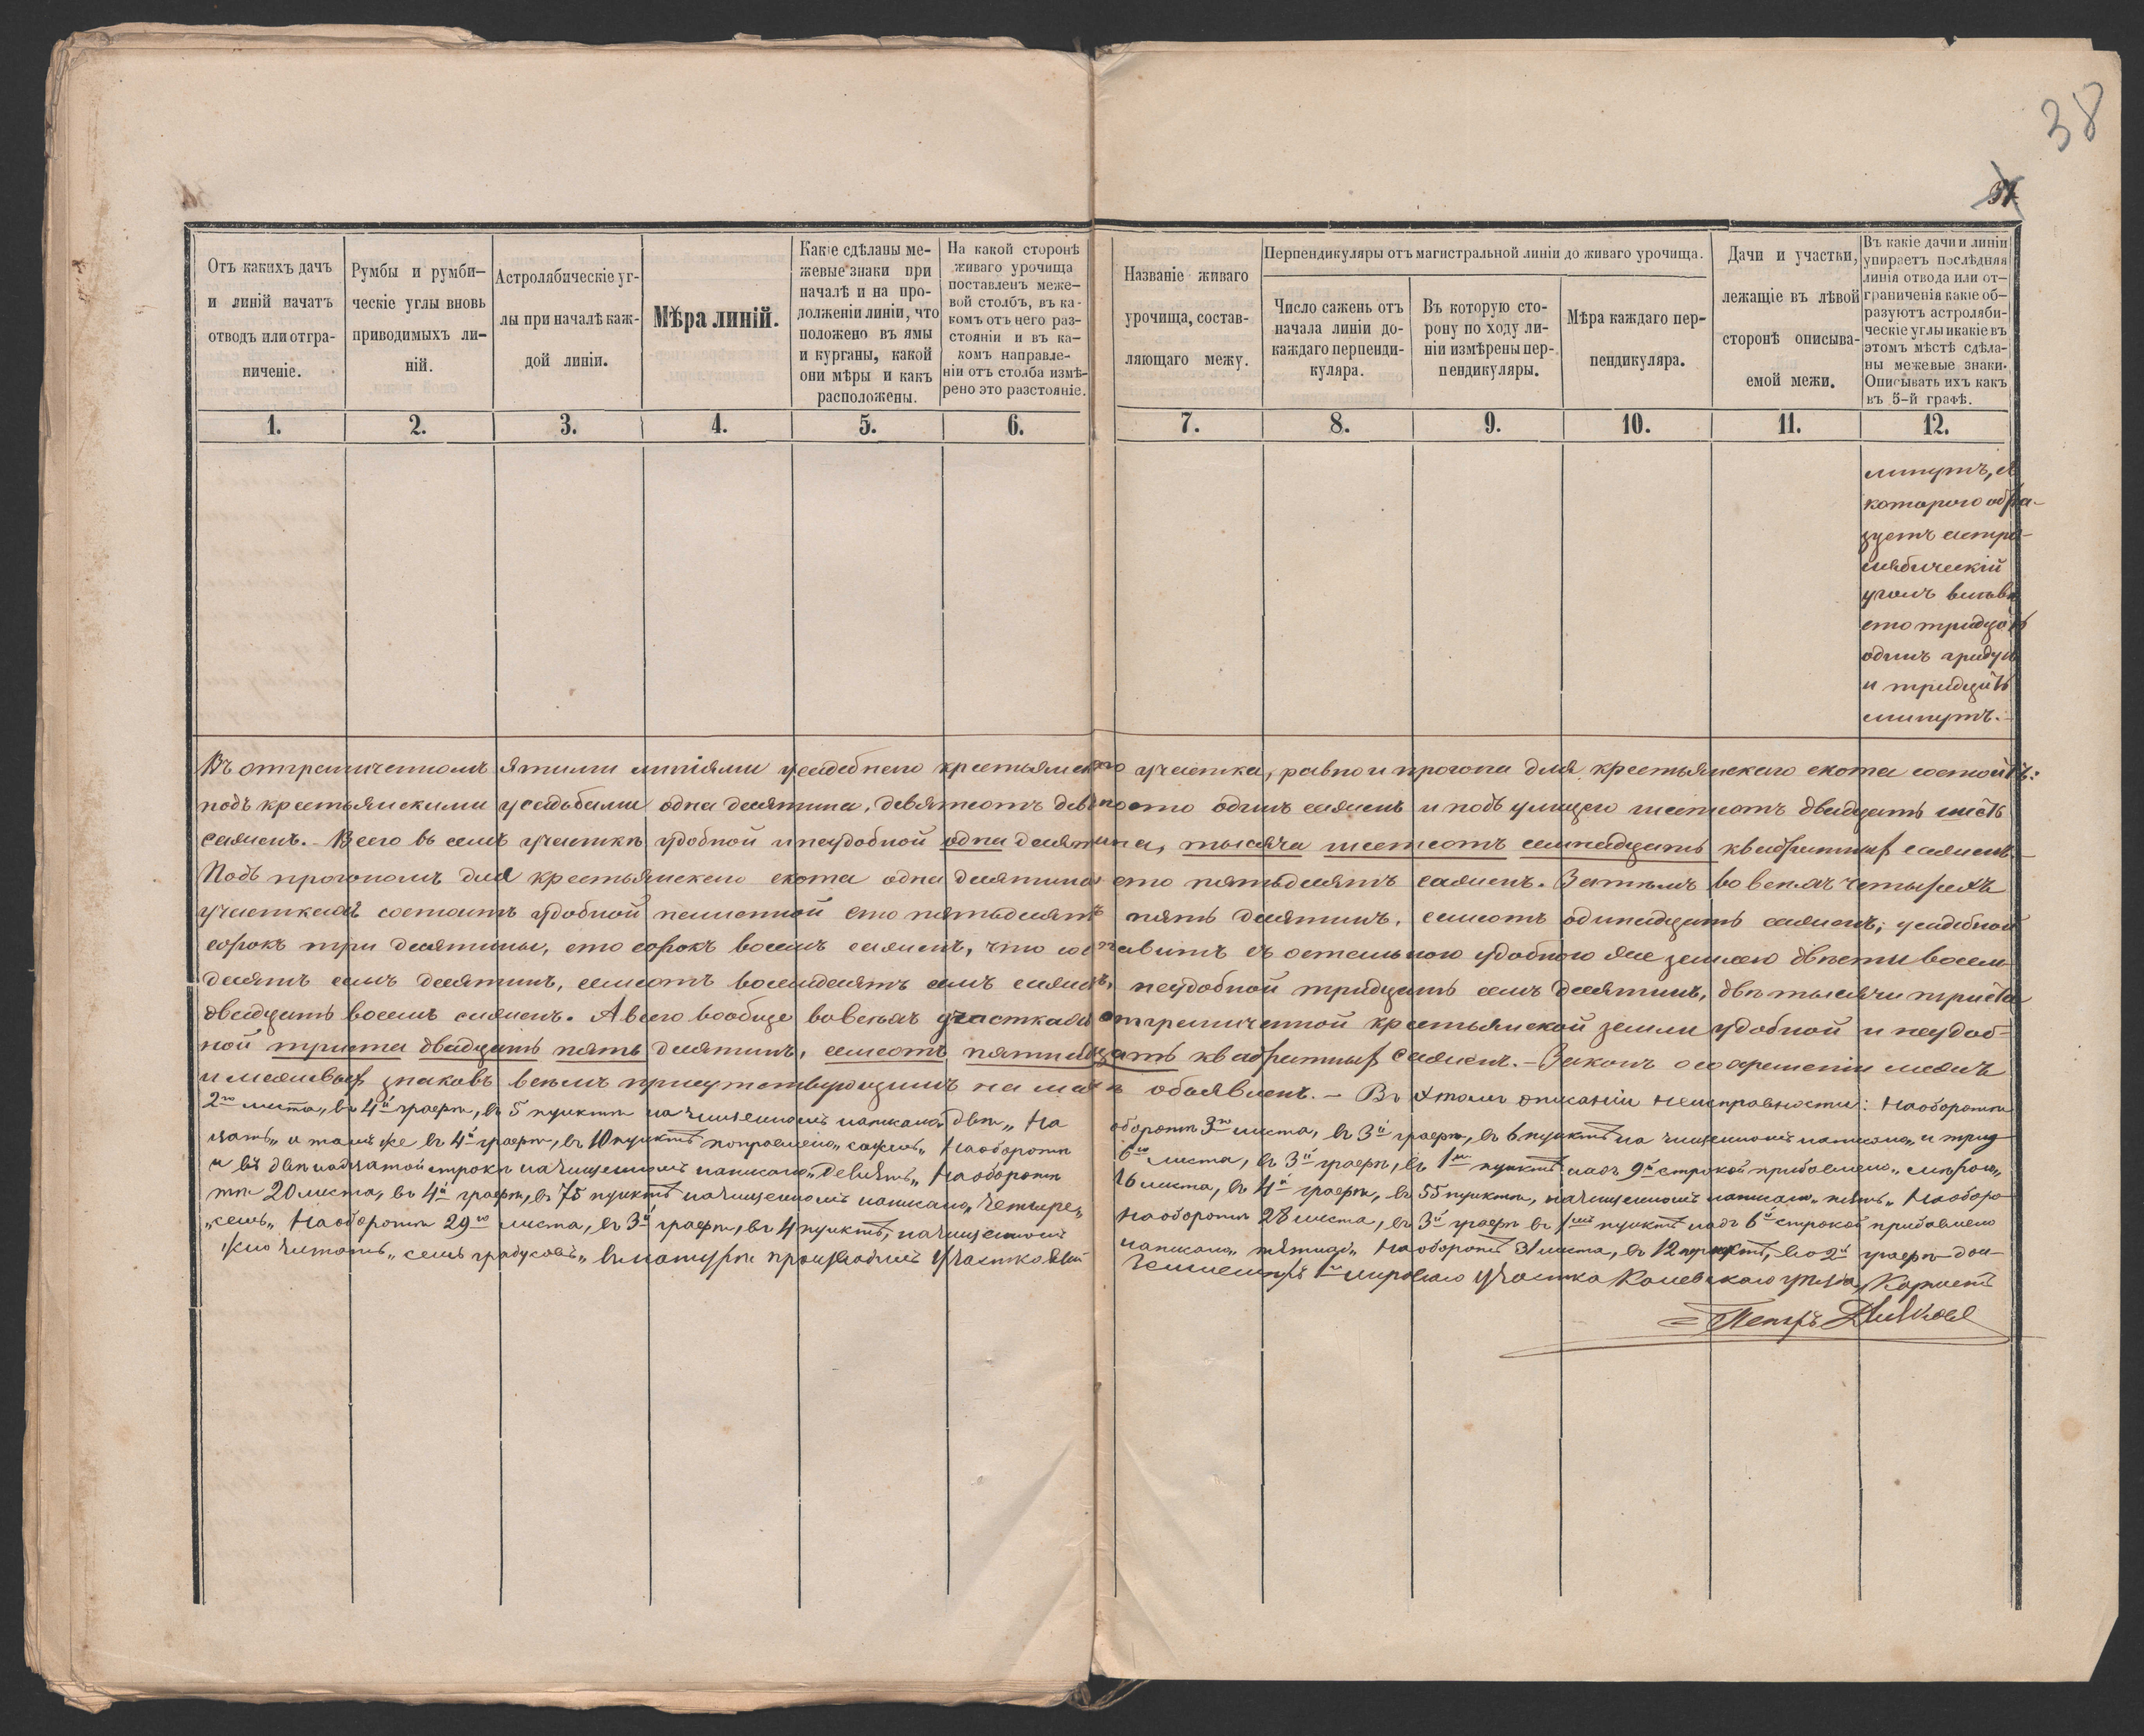 38
37
Отъ какихъ дачъ
и линій начатъ
отводъ или отгра-
ниченіе.
Румбы и румби-
ческіе углы вновь
приводимыхъ ли-
ній.
Астролябическіе уг-
лы при началѣ каж-
дой линіи.
Мѣра линій.
Какіе сдѣланы ме-
жевые знаки при
началѣ и на про-
долженіи линіи, что
положено въ ямы
и курганы, какой
они мѣры и какъ
расположены.
На какой сторонѣ
живаго урочища
поставленъ меже-
вой столбъ, въ ка-
комъ отъ него раз-
стояніи и въ ка-
комъ направле-
ніи отъ столба измѣ-
рено это разстояніе.
Названіе живаго
урочища, состав-
ляющаго межу.
Перпендикуляры отъ магистральной линіи до живаго урочища.
Число сажень отъ
начала линіи до-
каждаго перпенди-
куляра.
Въ которую сто-
рону по ходу ли-
ніи измѣрены пер-
пендикуляры.
Мѣра каждаго пер-
пендикуляра.
Дачи и участки,
лежащіе въ лѣвой
сторонѣ описыва-
емой межи.
Въ какіе дачи и линіи
упираетъ послѣдняя
линія отвода или от-
граниченія какіе об-
разуютъ астроляби-
ческіе углы и какіе въ
этомъ мѣстѣ сдѣла-
ны межевые знаки.
Описывать ихъ какъ
въ 5-й графѣ.
1. 2. 3. 4. 5. 6. 7. 8. 9. 10. 11. 12.
минутъ, съ
котораго обра-
зуетъ астро-
лябическій
уголъ влѣво
сто тридцать
одинъ градусъ
и тридцать
минутъ.
Въ отграниченномъ этими линіями усадебнаго крестьянскаго участка, равно и прогона для крестьянскаго скота состоитъ:
подъ крестьянскими усадьбами одна десятина, девятьсотъ девяносто одинъ сажень и подъ улицею шестьсотъ двадцать шесть
сажень. Всего въ семъ участкѣ удобной и неудобной одна десятина, тысяча шестьсотъ семнадцать квадратныхъ сажень.
Подъ прогономъ для крестьянскаго скота одна десятина сто пятьдесятъ сажень. Затѣмъ во всѣхъ четырехъ
участкахъ состоитъ удобной пашенной сто пятьдесятъ пять десятинъ, семьсотъ одинадцать сажень; усадебной
сорокъ три десятины, сто сорокъ восемь сажень, что составитъ съ остальною удобною же землею двѣсти восемь-
десятъ семь десятинъ, семьсотъ восемдесятъ семь сажень, неудобной тридцать семь десятинъ, двѣ тысячи триста
двадцать восемь сажень. А всего вообще во всѣхъ участкахъ отграниченной крестьянской земли удобной и неудоб-
ной триста двадцать пять десятинъ, семьсотъ пятнадцать квадратныхъ сажень. — Законъ о сохраненіи межъ
и межевыхъ знаковъ всѣмъ присутствующимъ на межѣ объявленъ. — Въ этомъ описаніи неисправности: На оборотѣ
2го листа, въ 4й графѣ, въ 5 пунктѣ на чищенномъ написано „двѣ„ На оборотѣ 3го листа, въ 3й графѣ, въ 6 пунктѣ на чищенномъ написано „и трид
цать„ и тамъ же въ 4й графѣ, въ 10 пунктѣ поправлено „сажень„ На оборотѣ 6го листа, въ 3й графѣ, въ 1мъ пунктѣ надъ 9й строкой прибавлено „мѣрою„
и въ двѣнадцатой строкѣ на чищенномъ написано „девять„ На оборотѣ 16 листа, въ 4й графѣ, въ 55 пунктѣ, на чищенномъ написано „пять„ На оборо-
тѣ 20 листа, въ 4й графѣ, въ 75 пунктѣ на чищенномъ написано „четыре„ На оборотѣ 28 листа, въ 3й графѣ въ 1мъ пунктѣ надъ 6й строкой прибавлено
„семь„ На оборотѣ 29го листа, въ 3й графѣ, въ 4 пунктѣ, на чищенномъ написано На оборотѣ 31 листа, въ 12 пунктѣ, во 2й графѣ дол-
жно читать „семь градусовъ„ Въ натурѣ производилъ Участковый Землемѣръ 1го мироваго участка Каневскаго уѣзда,
Петръ